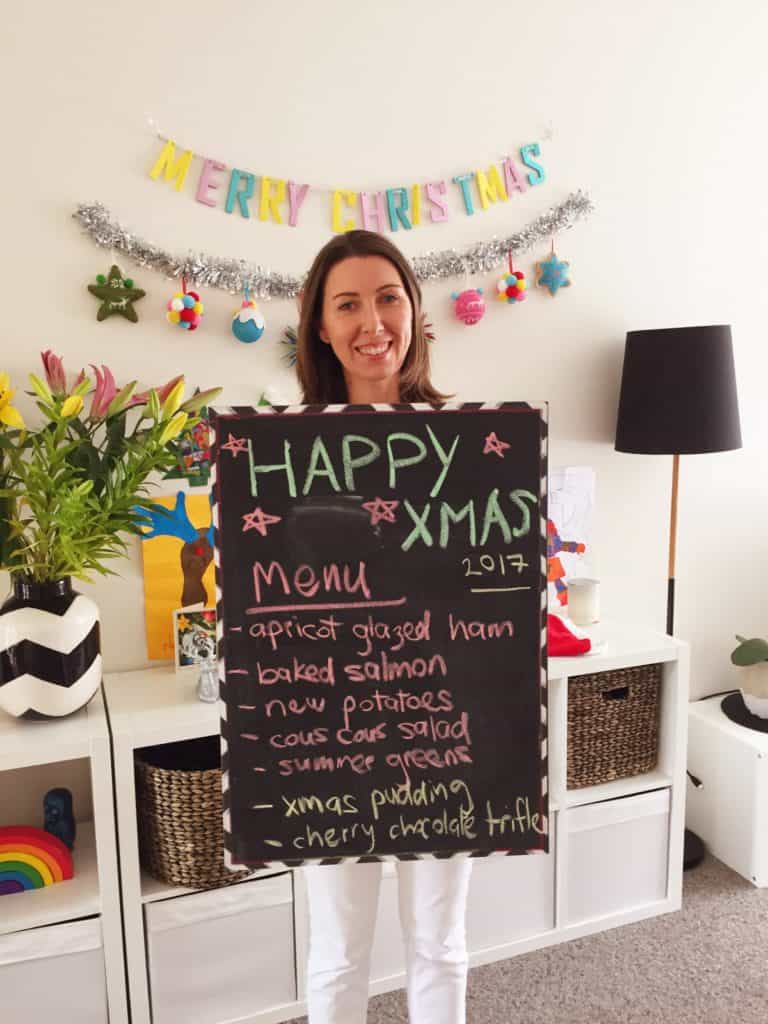 MERRY CHRISTMAS
HAPPY
XMAS
2017
Menu
- apricot glazed ham
- baked salmon
- new potatoes
- cous cous salad
- summer greens
- xmas pudding
- cherry chocolate trifle